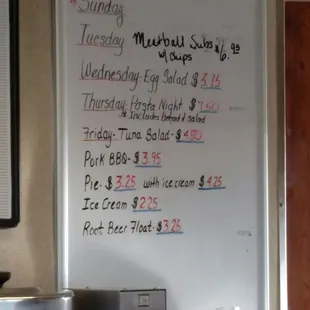 Sunday
Tuesday Meatball Subs $6.95
w/ chips
Wednesday- Egg Salad $3.75
Thursday- Pasta Night $7.50
* Includes bread & salad
Friday- Tuna Salad- $4.50
Pork BBQ- $3.95
Pie- $3.25 with ice cream $4.25
Ice Cream $2.25
Root Beer Float- $3.25